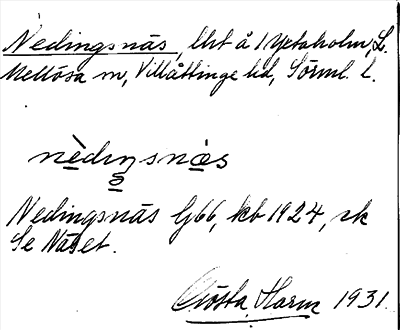 Nedingsnäs, lht å Metaholm, L.
Mellösa sn, Villåttinge hd, Sörml. l.
nèdıŋsnæs
Nedingsnäs G66, kb 1924, sk
Se Näset.
Gösta Harm 1931.